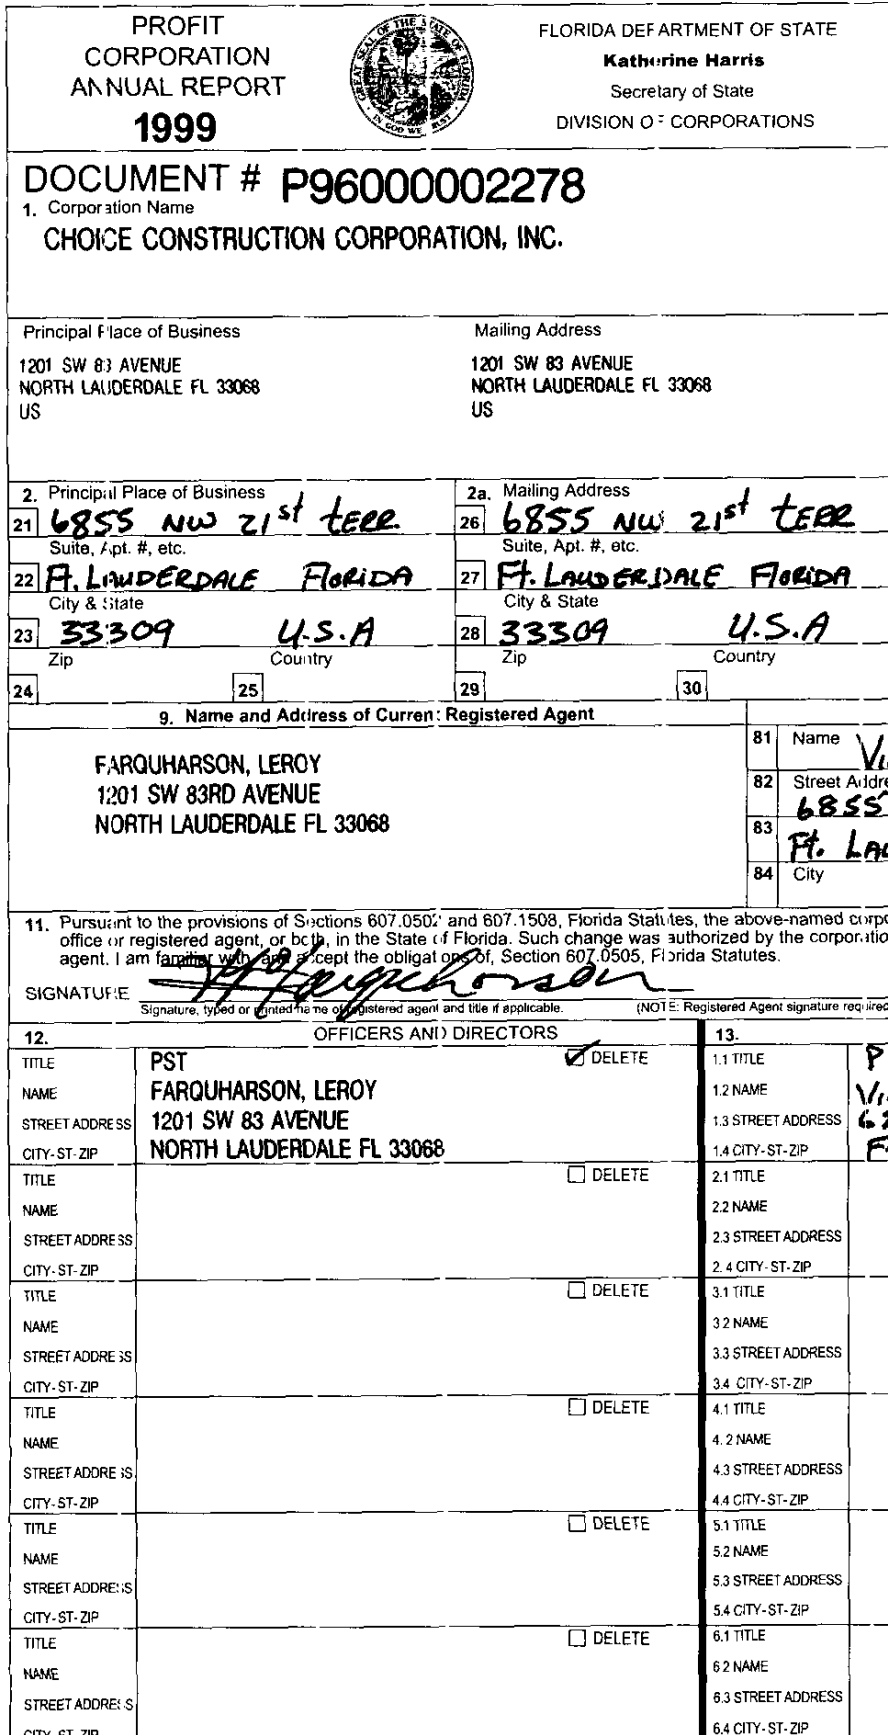 PROFIT
CORPORATION
ANNUAL REPORT
1999
GREAT SEAL OF THE STATE OF FLORIDA
IN GOD WE TRUST
FLORIDA DEPARTMENT OF STATE
Katherine Harris
Secretary of State
DIVISION OF CORPORATIONS
DOCUMENT # P96000002278
1. Corporation Name
CHOICE CONSTRUCTION CORPORATION, INC.
Principal Place of Business
1201 SW 83 AVENUE
NORTH LAUDERDALE FL 33068
US
Mailing Address
1201 SW 83 AVENUE
NORTH LAUDERDALE FL 33068
US
2. Principal Place of Business
21 6855 NW 21st TERR.
Suite, Apt. #, etc.
22 Ft. LAUDERDALE FLORIDA
City & State
23 33309 U.S.A
Zip Country
24 25
2a. Mailing Address
26 6855 NW 21st TERR
Suite, Apt. #, etc.
27 Ft. LAUDERDALE FLORIDA
City & State
28 33309 U.S.A
Zip Country
29 30
9. Name and Address of Current Registered Agent
FARQUHARSON, LEROY
1201 SW 83RD AVENUE
NORTH LAUDERDALE FL 33068
81 Name
82 Street Addre
6855
83 Ft. LAU
84 City
11. Pursuant to the provisions of Sections 607.0502 and 607.1508, Florida Statutes, the above-named corpo
office or registered agent, or both, in the State of Florida. Such change was authorized by the corporatio
agent. I am familiar with, and accept the obligations of, Section 607.0505, Florida Statutes.
SIGNATURE
Signature, typed or printed name of registered agent and title if applicable. (NOTE: Registered Agent signature required
12. OFFICERS AND DIRECTORS 13.
TITLE PST DELETE
NAME FARQUHARSON, LEROY
STREET ADDRESS 1201 SW 83 AVENUE
CITY-ST-ZIP NORTH LAUDERDALE FL 33068
1.1 TITLE P
1.2 NAME
1.3 STREET ADDRESS
1.4 CITY-ST-ZIP
TITLE DELETE
NAME
STREET ADDRESS
CITY-ST-ZIP
2.1 TITLE
2.2 NAME
2.3 STREET ADDRESS
2.4 CITY-ST-ZIP
TITLE DELETE
NAME
STREET ADDRESS
CITY-ST-ZIP
3.1 TITLE
3.2 NAME
3.3 STREET ADDRESS
3.4 CITY-ST-ZIP
TITLE DELETE
NAME
STREET ADDRESS
CITY-ST-ZIP
4.1 TITLE
4.2 NAME
4.3 STREET ADDRESS
4.4 CITY-ST-ZIP
TITLE DELETE
NAME
STREET ADDRESS
CITY-ST-ZIP
5.1 TITLE
5.2 NAME
5.3 STREET ADDRESS
5.4 CITY-ST-ZIP
TITLE DELETE
NAME
STREET ADDRESS
CITY-ST-ZIP
6.1 TITLE
6.2 NAME
6.3 STREET ADDRESS
6.4 CITY-ST-ZIP